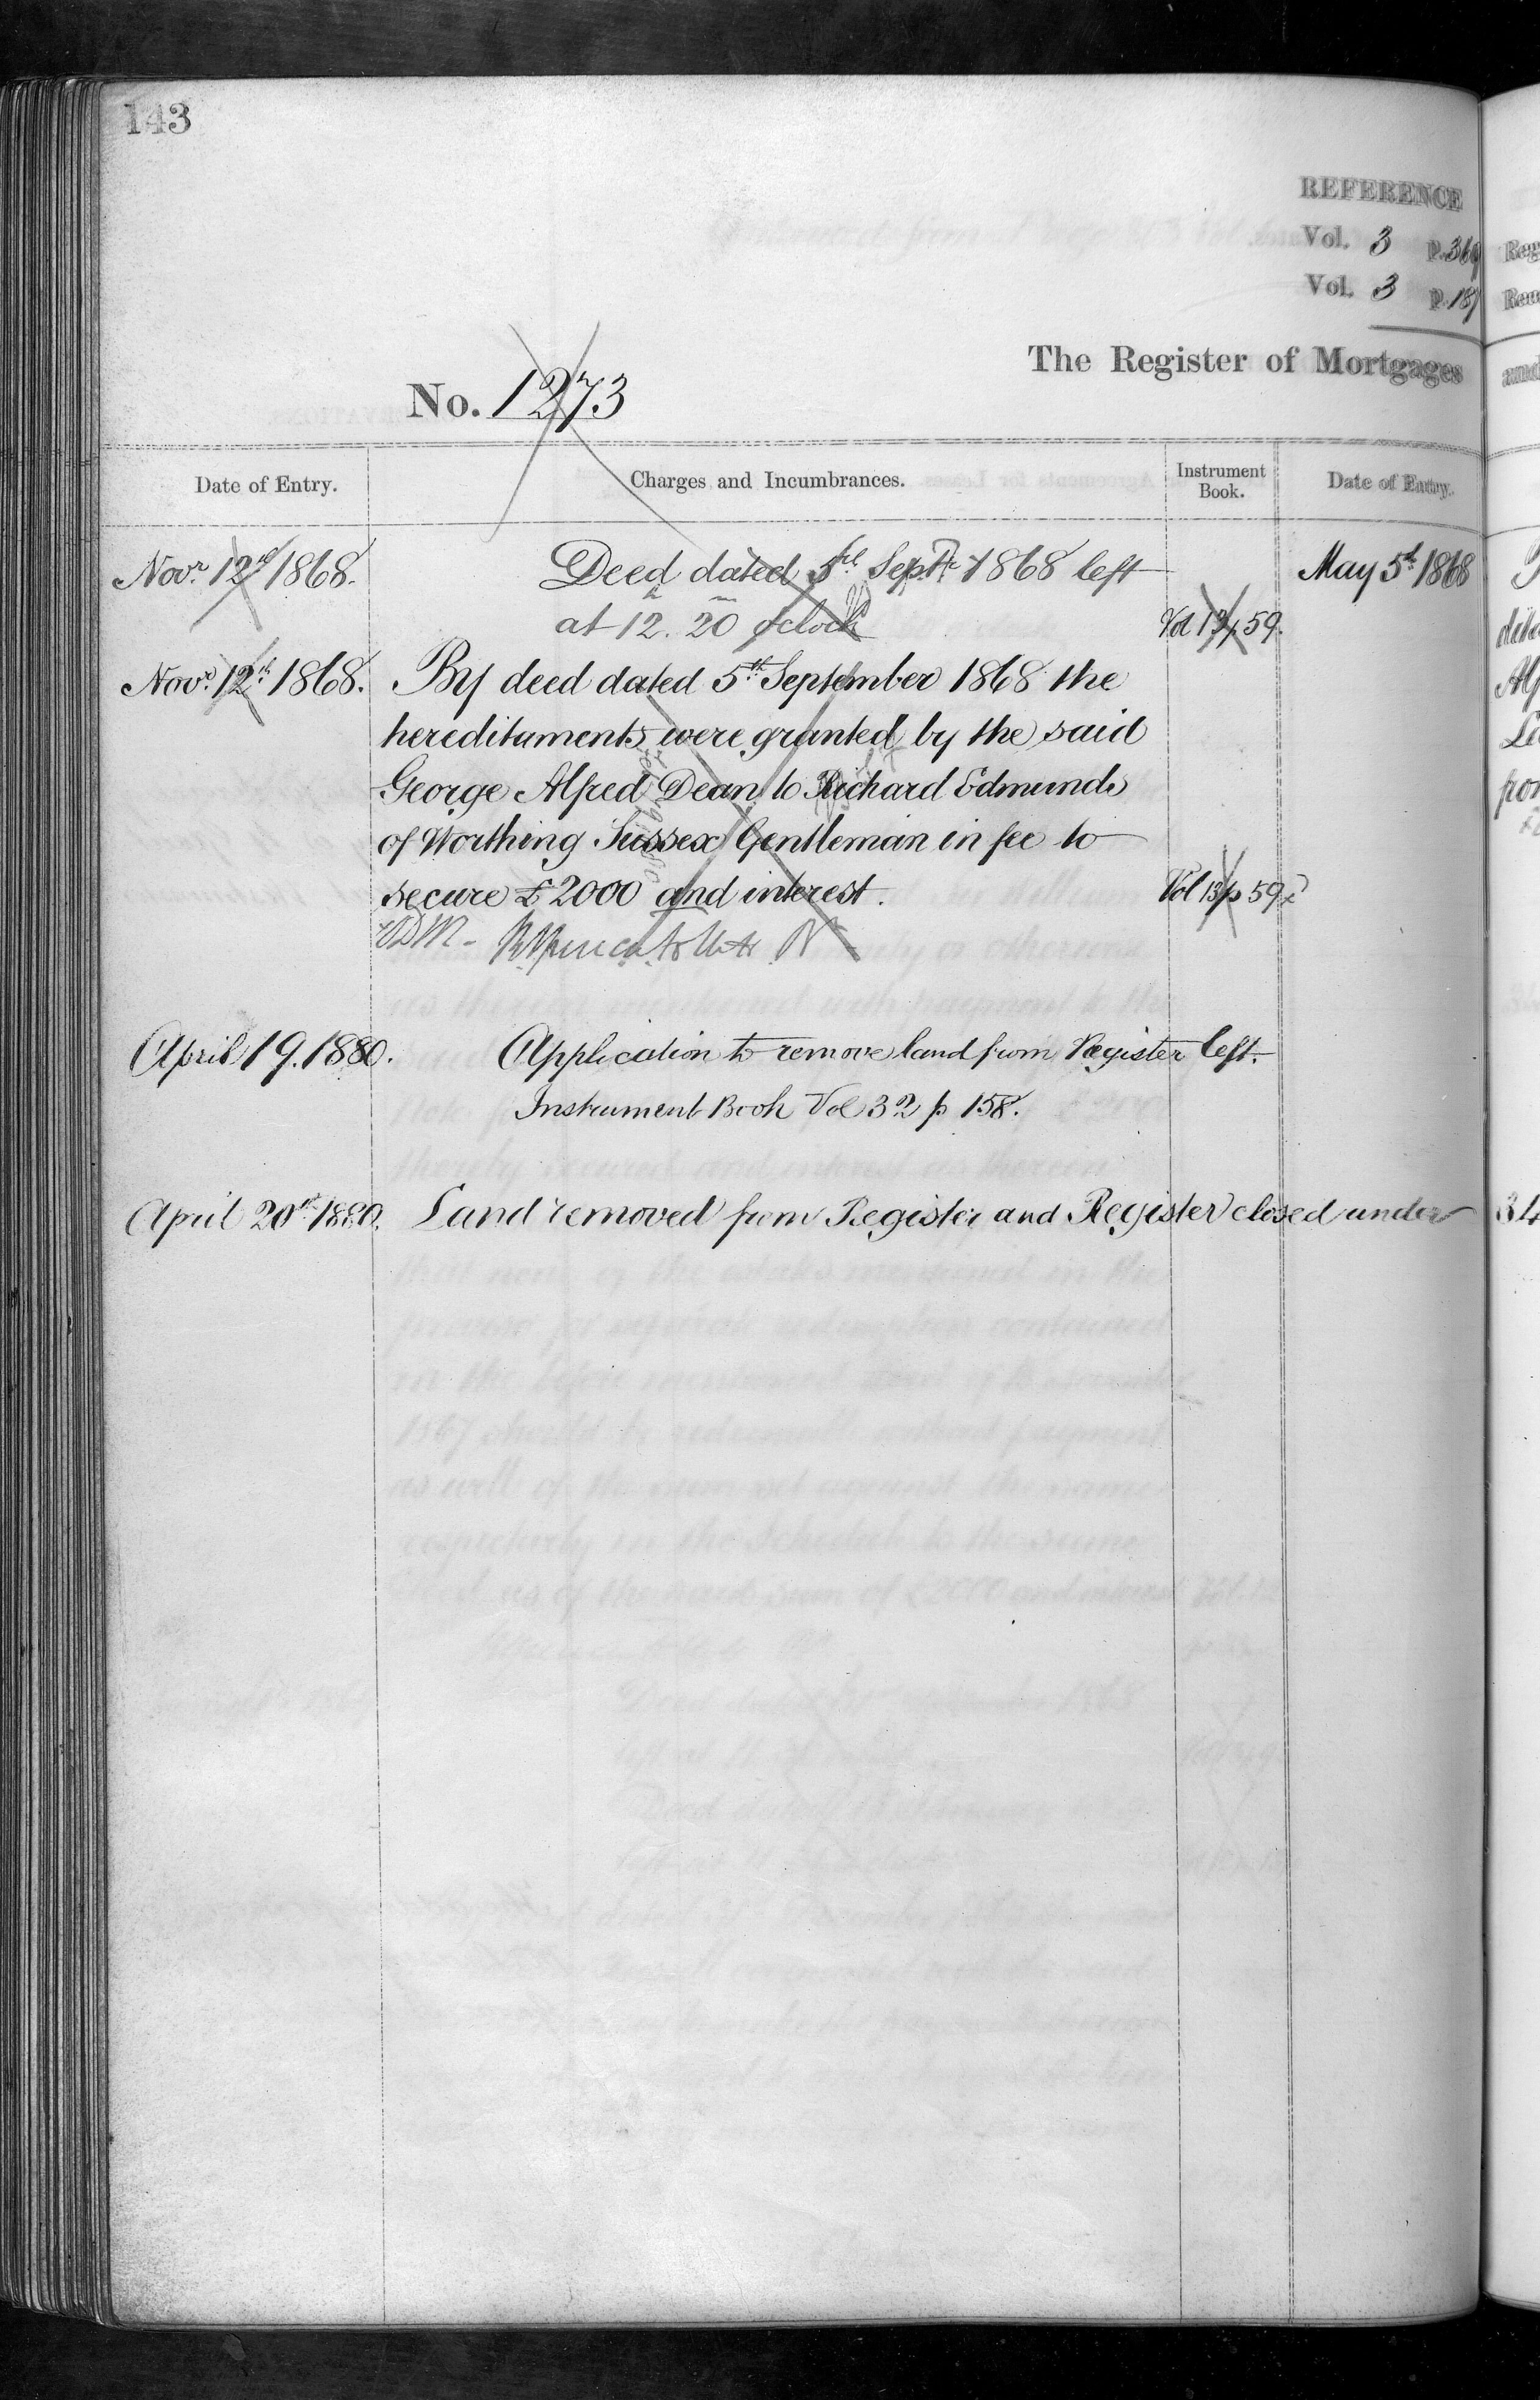 143
REFERENCE
Vol. 3 p. 369
Vol. 3 p. 187
The Register of Mortgages
No. 1273
Date of Entry. Charges and Incumbrances. Instrument Book. Date of Entry.
Novr. 12th 1868. Deed dated 5th Septr. 1868 left May 5th 1868
at 12. 20 o'clock Vol 13 p 59.
Novr. 12th 1868. By deed dated 5th September 1868 the
hereditaments were granted by the said
George Alfred Dean to Richard Edmunds
of Worthing Sussex Gentleman in fee to
secure £2000 and interest. Vol 13 p 59
April 19. 1880. Application to remove land from Register left.
Instrument Book Vol 32 p 158.
April 20th 1880. Land removed from Register and Register closed under 34